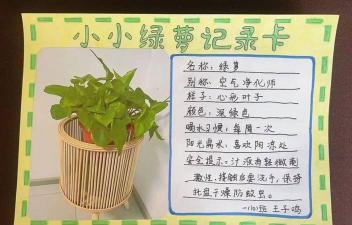 小小绿萝记录卡
名称：绿萝
别称：空气净化师
样子：心形叶子
颜色：深绿色
喝水习惯：每周一次
阳光离水：喜欢阴凉处
安全提示：汁液有轻微刺
激性，接触后要洗手，保持
托盘干燥防蚊虫。
王子鸣